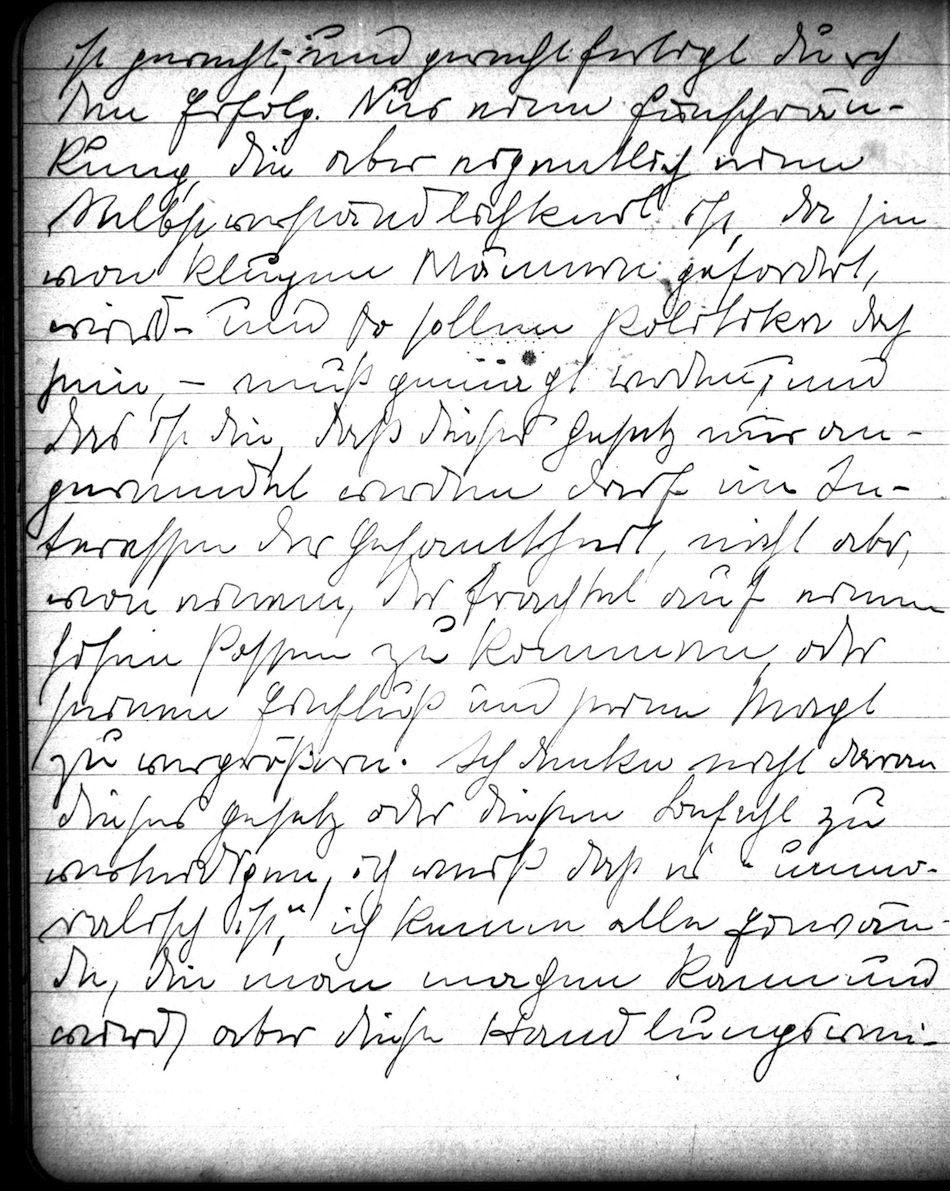 ist gerecht, und gerechtfertigt durch
den Erfolg. Nur eine Einschrän-
kung, die aber eigentlich eine
Selbstverständlichkeit ist, da sie
von klugen Männern gefordert,
wird – und so sollen Politiker doch
sein, – muß gemacht werden, und
das ist die, daß dieses Gesetz nur an-
gewendet werden darf im In-
teressen der Gesamtheit, nicht aber,
von einem, der trachtet auf einen
hohen Posten zu kommen, oder
seinen Einfluß und seine Macht
zu vergrößern. Ich denke nicht daran
dieses Gesetz oder diesen Befehl zu
verteidigen, ich weiß daß es "unmo-
ralisch ist", ich kenne alle Einwän-
de, die man machen kann und
wird, aber diese Handlungswei-